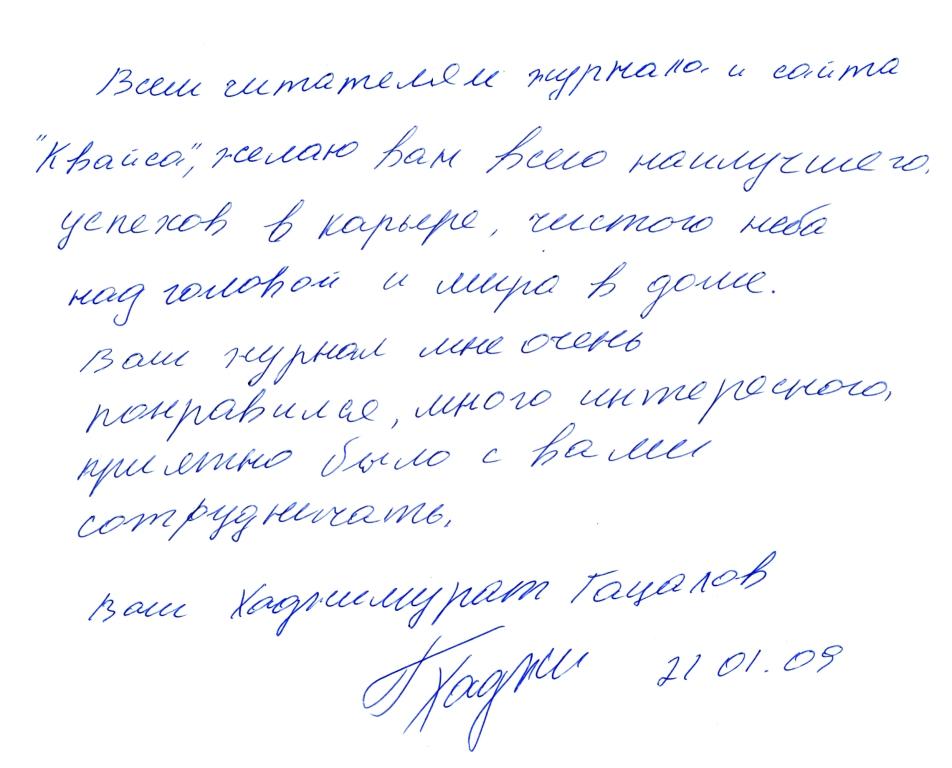 Всем читателям журнала и сайта
"Квайса", желаю вам всего наилучшего,
успехов в карьере, чистого неба
над головой и мира в доме.
Ваш журнал мне очень
понравился, много интересного,
приятно было с вами
сотрудничать.
Ваш Хаджимурат Гацалов
Г Хаджи 21 01.09